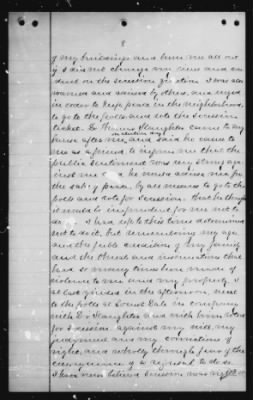 8
of my buildings and burn me all out
if I did not change my views and con
duct on the secession question. I was also
warned and advised by others, and urged
in order to keep peace in the neighborhood
to go to the polls and vote the secession
ticket. Dr Slaughter came to my
house after me, on election day and said he came to
me as a friend to inform me that the
public sentiment was very strong aga
inst me and he must advise me for
the sake of peace, by all means to go to the
polls and vote for secession. That he thought
it would be imprudent for me not to
do so. I had up to this time determined
not to do it, but remembering my age
and the feeble condition of my family
and the threats and insinuations that
had so many times been made of
violence to me and my property I
at last yielded in the afternoon, and went
to the polls at Locust Dale in company
with Dr Slaughter and with him voted
for secession against my will, my
judgement and my convictions of
right, and wholly through fear of the
consequences of a refusal to do so.
I have never believed secession was right or